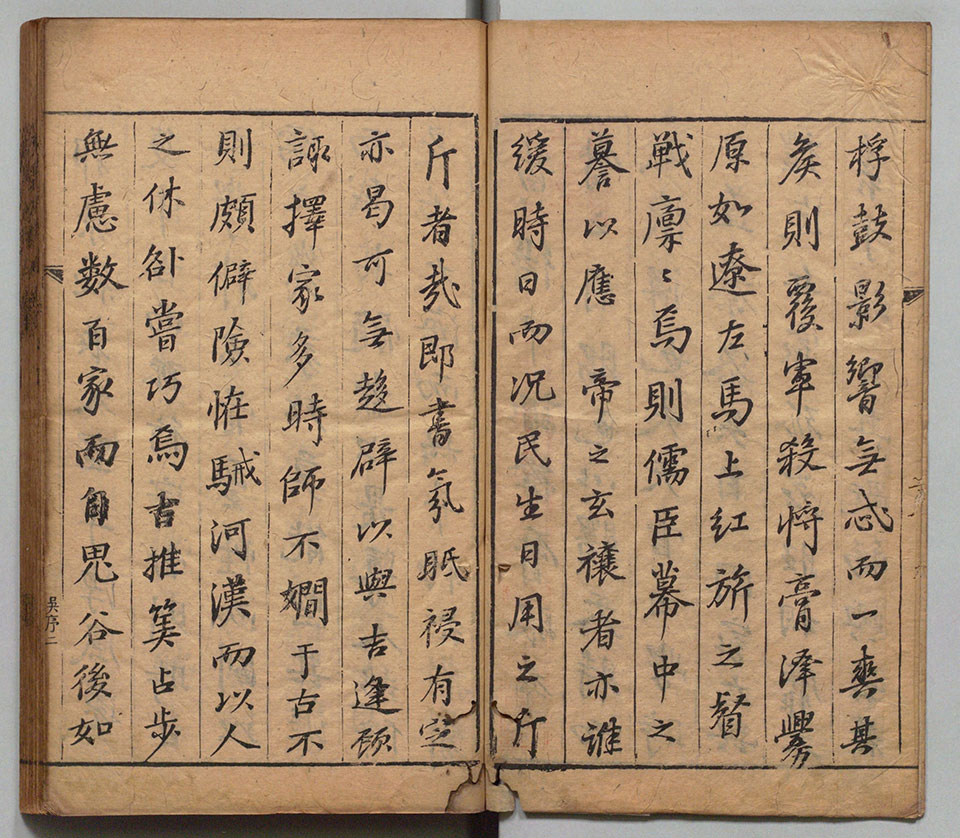 桴鼓影響無忒而一爽其
矦則覆軍殺將膏澤釁
原如遼左馬上紅旂之督
戰廩〻焉則儒臣幕中之
謩以應帝之玄禳者亦誰
緩時日而况民生日用之斤
斤者哉即書氛眡祲有定
亦曷可無趍辟以與吉逢顾
諏擇家多時師不嫺于古不
則頗僻險恠駴河漢而以人
之休咎嘗巧焉古推筭占步
無慮数百家而自鬼谷後如
吳序二